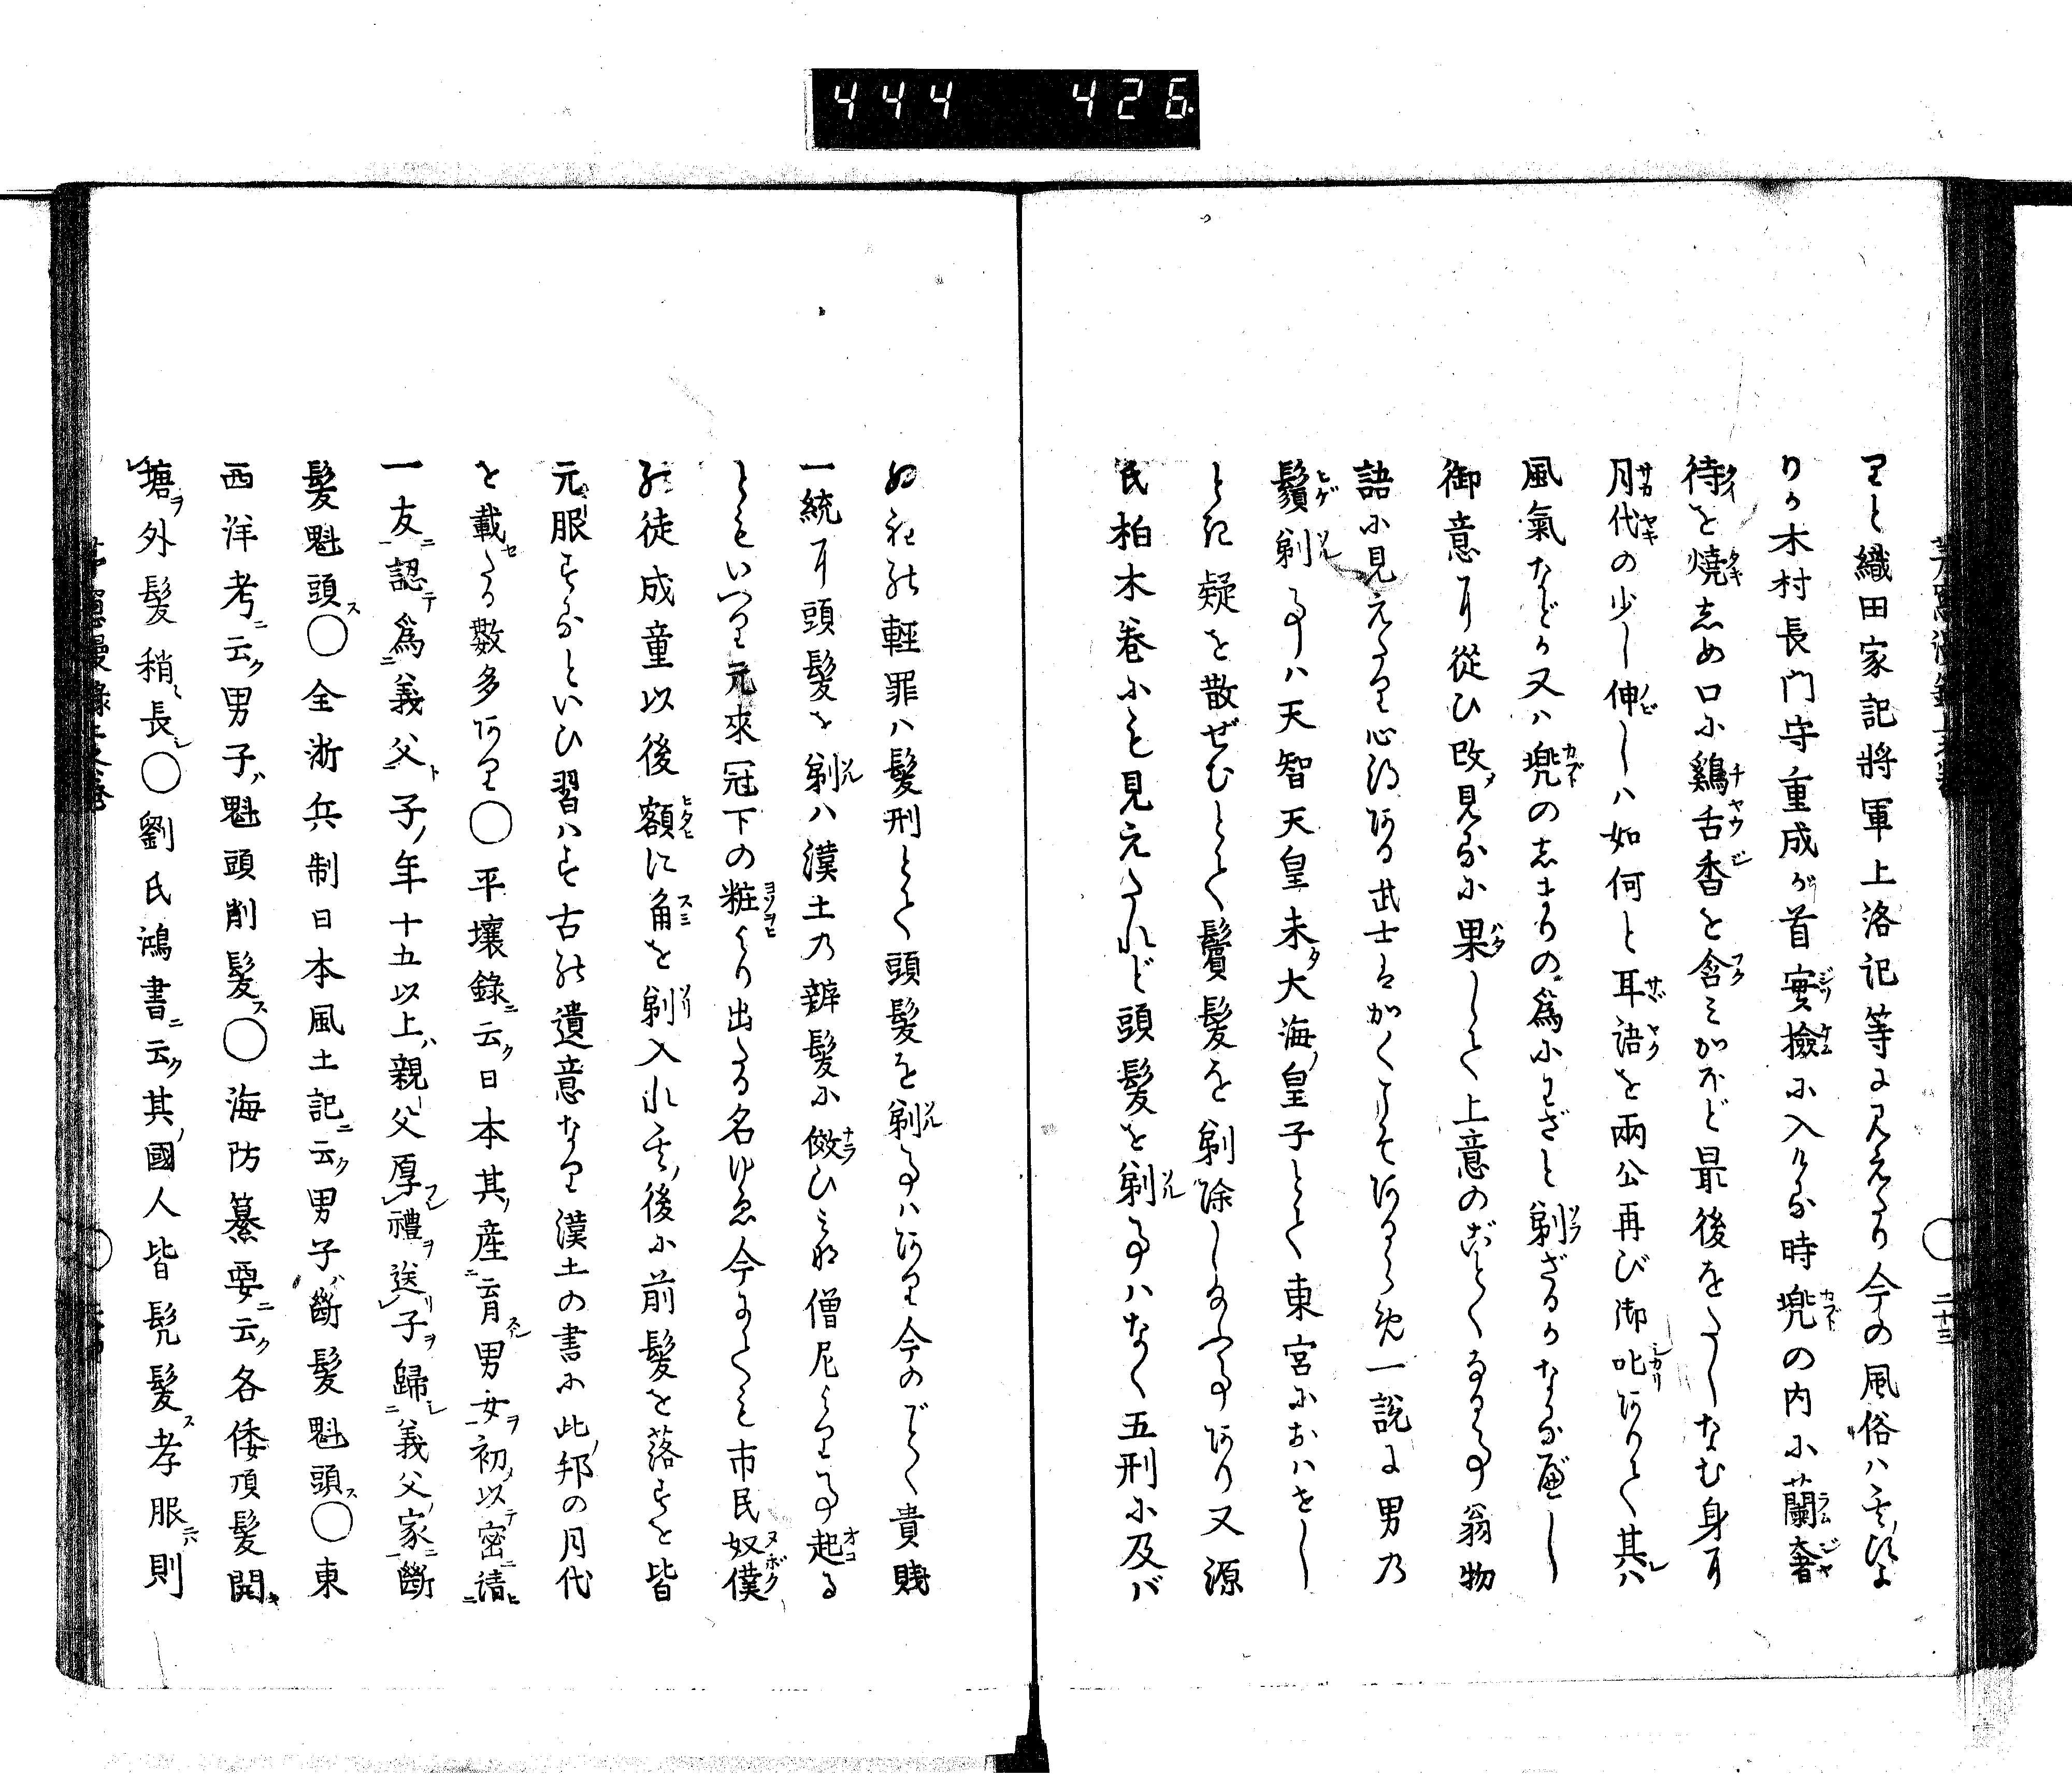 444 426
りと織田家記將軍上洛記等に見えたり今の風俗ハ
木村長門守重成が首實撿に入りし時兜の内に蘭奢
待を燒しめ口に鷄舌香を含ミかほど最後をたしなむ身に
月代の少し伸しハ如何と耳語を兩公再び御叱ありて其ハ
風氣などか又ハ兜のしまりの爲にわざと剃ざるかなるべし
御意に從ひ改見るに果して上意のごとくなる事翁物
語に見えたり心得ある武士はかくこそあるらめ一説に男の
鬚剃事ハ天智天皇未大海皇子とて東宮におハせし
とき疑を散ぜむとて鬢髮を剃除し給ふ事あり又源
氏柏木巻にも見えたれど頭髮を剃事ハなく五刑に及バ
ぬ程の輕罪ハ髮刑とて頭髮を剃事ハあり今のごとく貴賤
一統に頭髮を剃ハ漢土の辨髮に傚ひ又僧尼より事起る
ともいへり元來冠下の粧より出たる名ゆゑ今にても市民奴僕
の徒成童以後額に角を剃入れ其後に前髮を落すを皆
元服するなといひ習ハす古の遺意なり漢土の書に此邦の月代
を載たる數多あり○平壤錄云日本其産育男女初以密請
一友認爲義父子年十五以上親父厚禮送子歸義父家斷
髮魁頭○全浙兵制日本風土記云男子斷髮魁頭○東
西洋考云男子魁頭削髮○海防纂要云各倭頂髮開
塘外髮稍長○劉氏鴻書云其國人皆髠髮孝服則
二十三